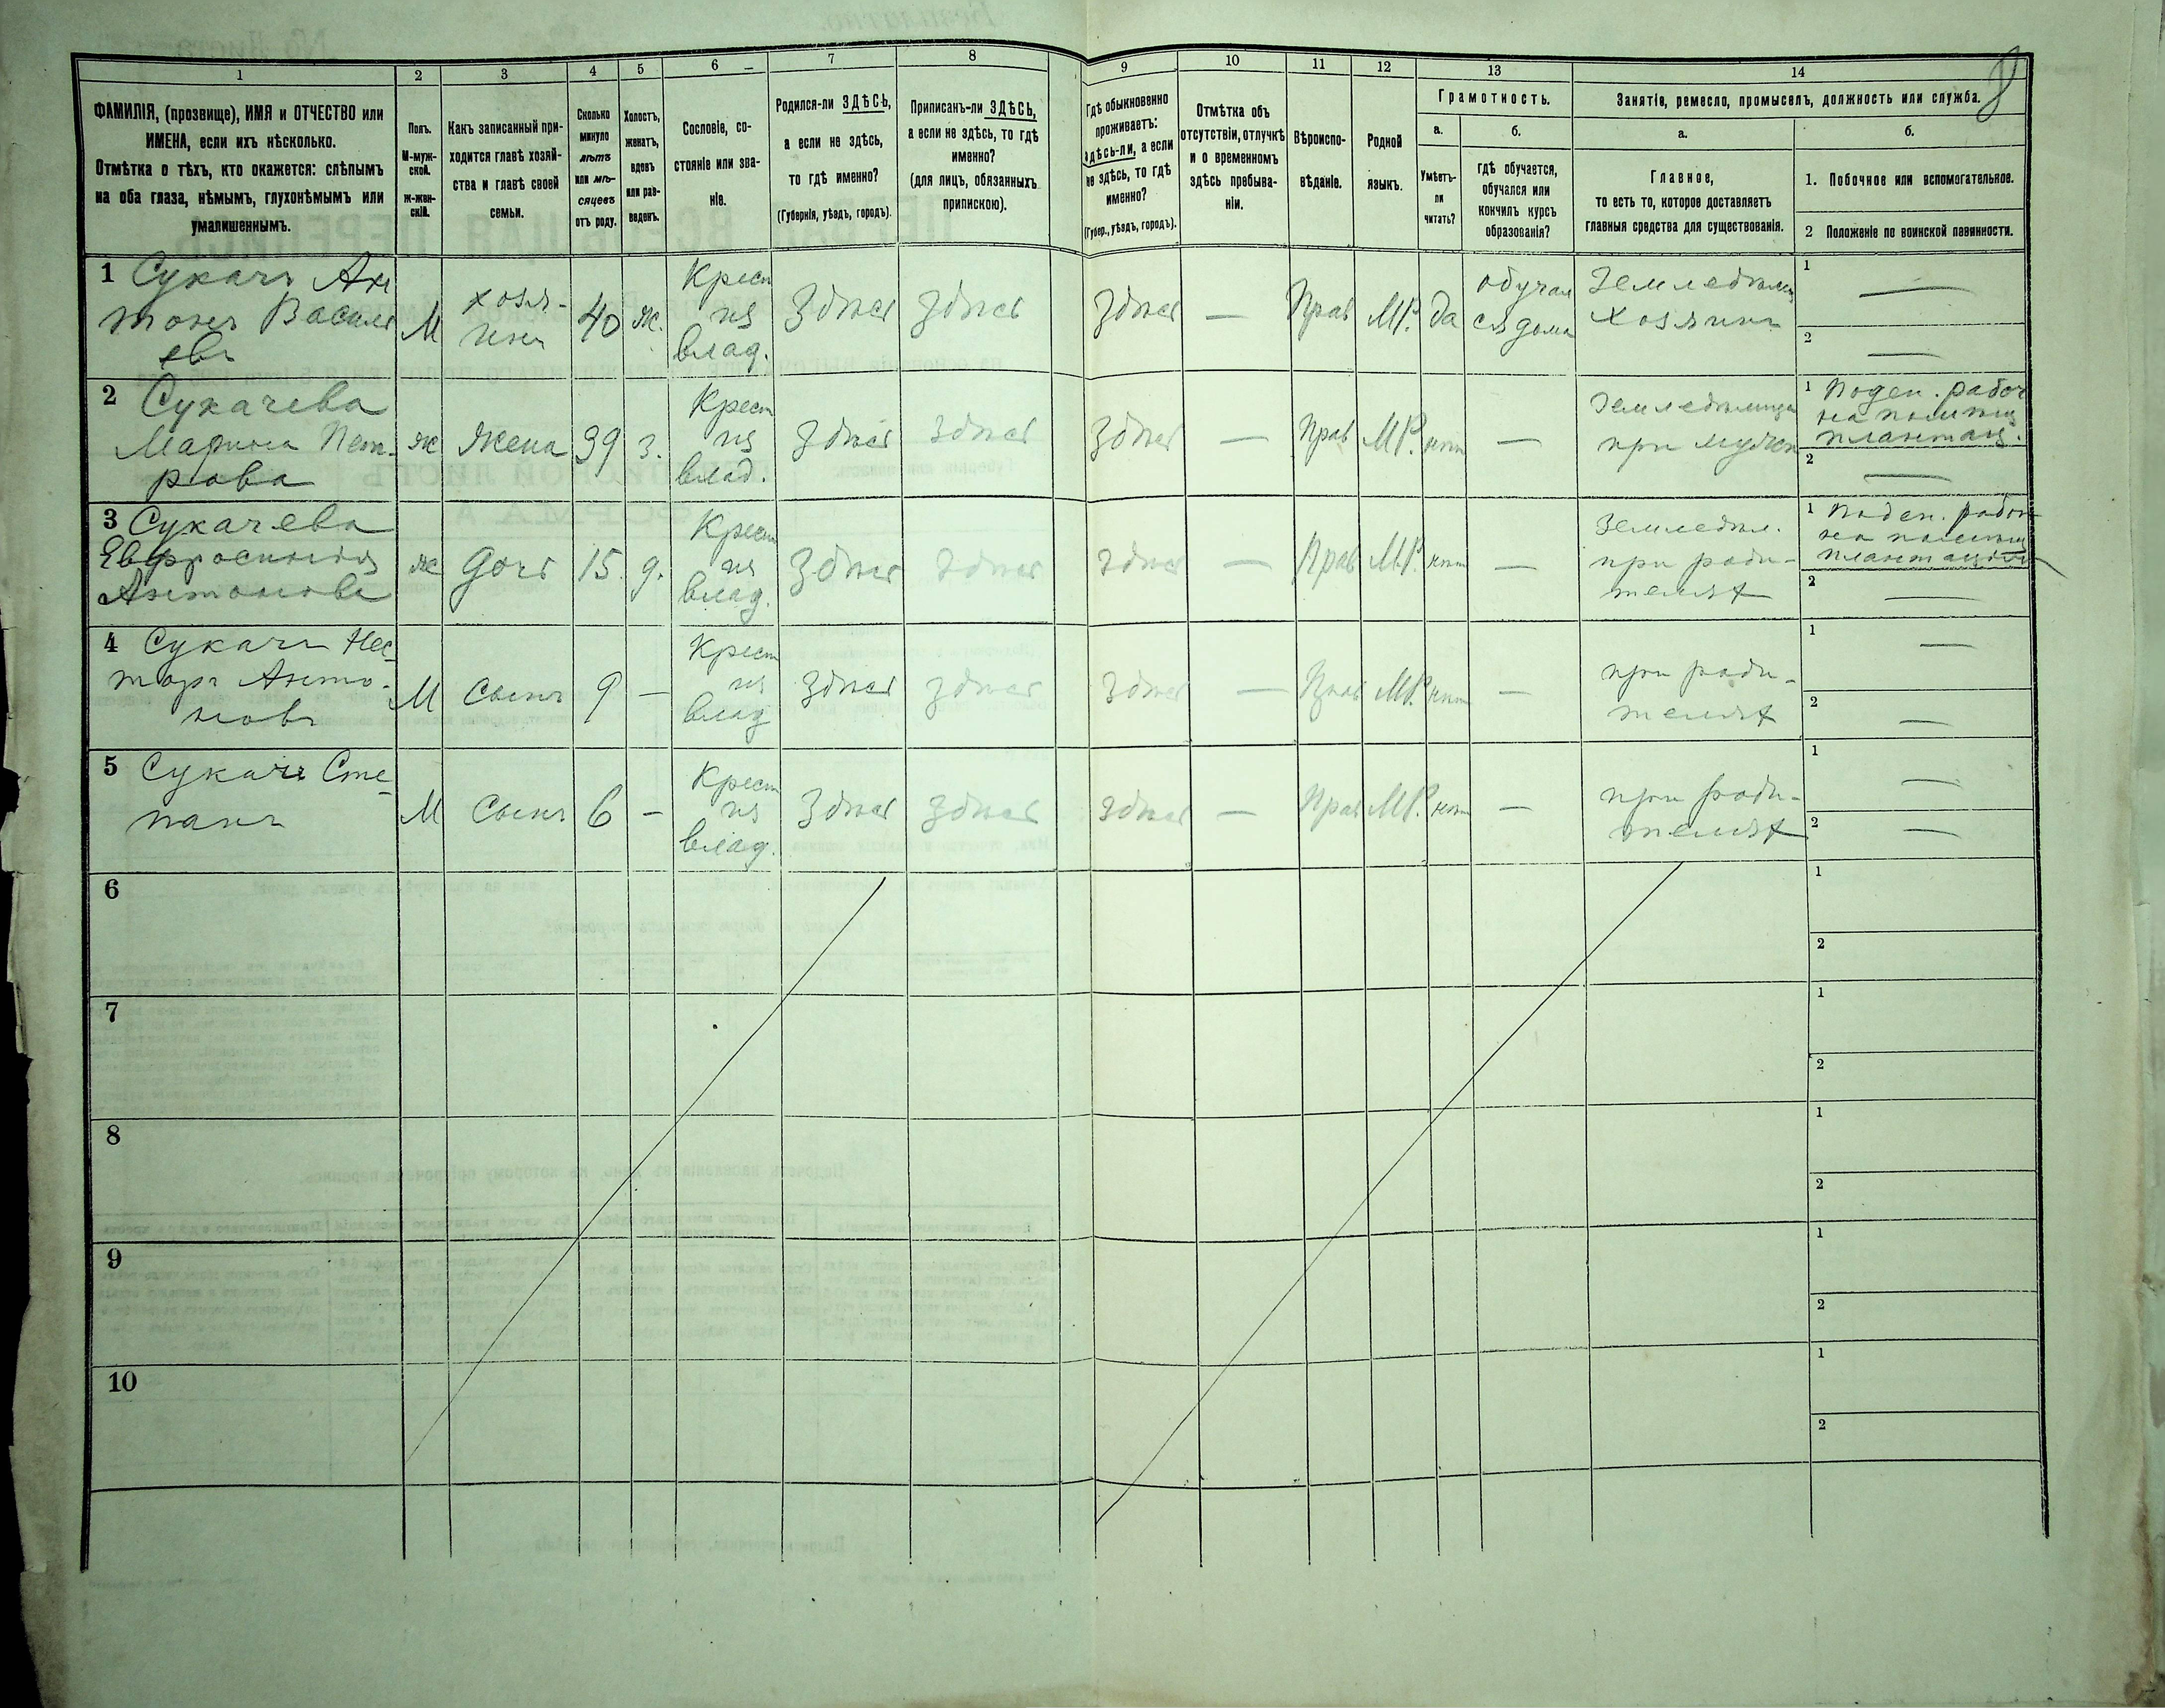 1 2 3 4 5 6 7 8 9 10 11 12 13 14
ФАМИЛІЯ, (прозвище), ИМЯ и ОТЧЕСТВО или
ИМЕНА, если ихъ нѣсколько.
Отмѣтка о тѣхъ, кто окажется: слѣпымъ
на оба глаза, нѣмымъ, глухонѣмымъ или
умалишеннымъ.
Полъ.
М-муж-
ской.
Ж-жен-
скій.
Какъ записанный при-
ходится главѣ хозяй-
ства и главѣ своей
семьи.
Сколько
минуло
лѣтъ
или мѣ-
сяцевъ
отъ роду.
Холостъ,
женатъ,
вдовъ
или раз-
веденъ.
Сословіе, со-
стояніе или зва-
ніе.
Родился-ли ЗДѢСЬ,
а если не здѣсь,
то гдѣ именно?
(Губернія, уѣздъ, городъ).
Приписанъ-ли ЗДѢСЬ,
а если не здѣсь, то гдѣ
именно?
(для лицъ, обязанныхъ
припискою).
Гдѣ обыкновенно
проживаетъ:
здѣсь-ли, а если
не здѣсь, то гдѣ
именно?
(Губер., уѣздъ, городъ).
Отмѣтка объ
отсутствіи, отлучкѣ
и о временномъ
здѣсь пребыва-
ніи.
Вѣроиспо-
вѣданіе.
Родной
языкъ.
Грамотность.
а.
Умѣетъ-
ли
читать?
б.
гдѣ обучается,
обучался или
кончилъ курсъ
образованія?
Занятіе, ремесло, промыселъ, должность или служба.
а.
Главное,
то есть то, которое доставляетъ
главныя средства для существованія.
б.
1. Побочное или вспомогательное.
2 Положеніе по воинской повинности.
8
1 Сукачъ Ан
тонъ Василь
евъ
М
хозя-
инъ
40
ж.
Крест
из
влад.
Здѣсь
Здѣсь
Здѣсь
—
Прав
М.Р.
да
обучал
ся дома
Земледѣлецъ
хозяинъ
1 —
2 —
2 Сукачева
Марина Пет-
рова
ж
жена
39
з.
Крест
из
влад.
Здѣсь
Здѣсь
Здѣсь
—
Прав
М.Р.
нѣт
—
Земледѣлица
при мужѣ
1 Поден. рабоч
на помѣщ
плантац.
2 —
3 Сукачева
Евфросинія
Антонова
ж
дочь
15.
д.
Крест
из
влад.
Здѣсь
Здѣсь
Здѣсь
—
Прав
М.Р.
нѣт
—
Земледѣл.
при роди-
теляхъ
1 Поден. рабоч
на помѣщ
2 —
4 Сукачъ Нес-
торъ Анто-
новъ
М
Сынъ
9
—
Крест
из
влад
Здѣсь
Здѣсь
Здѣсь
—
Прав
М.Р.
нѣт
—
при роди-
теляхъ
1 —
2 —
5 Сукачъ Сте-
панъ
М
Сынъ
6
—
Крест
из
влад.
Здѣсь
Здѣсь
Здѣсь
—
Прав
М.Р.
нѣт
—
при роди-
теляхъ
1 —
2 —
6
1
2
7
1
2
8
1
2
9
1
2
10
1
2